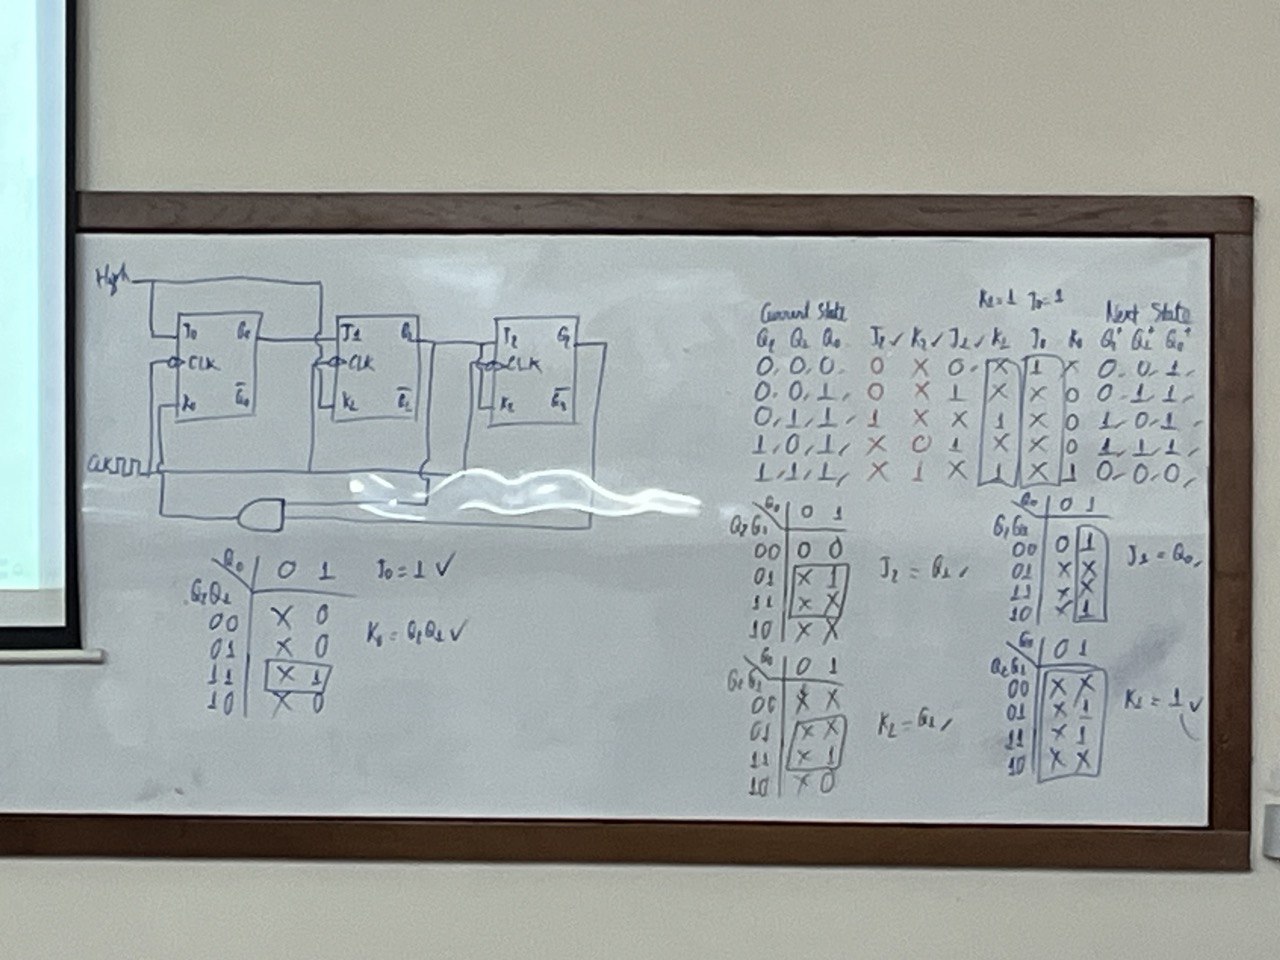 High
J0 Q0
CLK
K0 Q̅0
J1 Q1
CLK
K1 Q̅1
J2 Q2
CLK
K2 Q̅2
CLK
Q0 0 1
Q2Q1
00 X 0
01 X 0
11 X 1
10 X 0
J0 = 1 ✓
K0 = Q2Q1 ✓
K1=1 J0=1
Current State Next State
Q2 Q1 Q0 J2 ✓ K2 ✓ J1 ✓ K1 J0 K0 Q2⁺ Q1⁺ Q0⁺
0, 0, 0, 0 X 0 X 1 X 0, 0, 1,
0, 0, 1, 0 X 1 X X 0 0, 1, 1,
0, 1, 1, 1 X X 1 X 0 1, 0, 1,
1, 0, 1, X 0 1 X X 0 1, 1, 1,
1, 1, 1, X 1 X 1 X 1 0, 0, 0,
Q0 0 1
Q2Q1
00 0 0
01 X 1
11 X X
10 X X
J2 = Q1,
Q0 0 1
00 0 1
01 X X
11 X X
10 X 1
J1 = Q0,
Q0 0 1
Q2Q1
00 X X
01 X X
11 X 1
10 X 0
K2 = Q1,
Q0 0 1
Q2Q1
00 X X
01 X 1
11 X 1
10 X X
K1 = 1 ✓